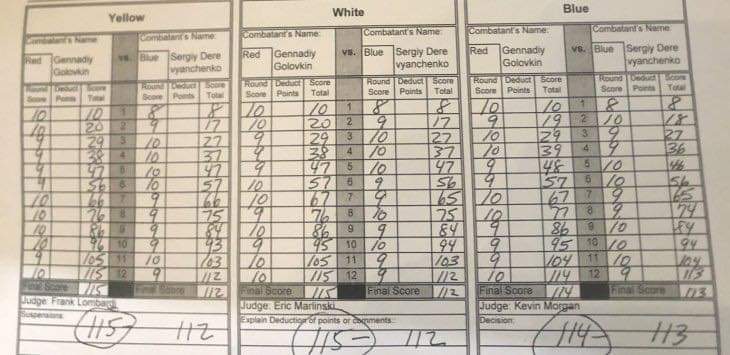 Yellow
Combatant's Name: Combatant's Name:
Red Gennadiy Golovkin vs. Blue Sergiy Dere
vyanchenko
Round Deduct Score Round Deduct Score
Score Points Total Score Points Total
10 10 1 8 8
10 20 2 9 17
9 29 3 10 27
9 38 4 10 37
9 47 5 10 47
9 56 6 10 57
10 66 7 9 66
10 76 8 9 75
10 86 9 9 84
10 96 10 9 93
9 105 11 10 103
10 115 12 9 112
Final Score 115 Final Score 112
Judge: Frank Lombardi
Suspensions:
115 112
White
Combatant's Name: Combatant's Name:
Red Gennadiy Golovkin vs. Blue Sergiy Dere
vyanchenko
Round Deduct Score Round Deduct Score
Score Points Total Score Points Total
10 10 1 8 8
10 20 2 9 17
9 29 3 10 27
9 38 4 10 37
9 47 5 10 47
10 57 6 9 56
10 67 7 9 65
9 76 8 10 75
10 86 9 9 84
9 95 10 10 94
10 105 11 9 103
10 115 12 9 112
Final Score 115 Final Score 112
Judge: Eric Marlinski
Explain Deduction of points or comments:
115 - 112
Blue
Combatant's Name: Combatant's Name:
Red Gennadiy Golovkin vs. Blue Sergiy Dere
vyanchenko
Round Deduct Score Round Deduct Score
Score Points Total Score Points Total
10 10 1 8 8
9 19 2 10 18
10 29 3 9 27
10 39 4 9 36
9 48 5 10 46
9 57 6 10 56
10 67 7 9 65
10 77 8 9 74
9 86 9 10 84
9 95 10 10 94
9 104 11 10 104
10 114 12 9 113
Final Score 114 Final Score 113
Judge: Kevin Morgan
Decision:
114 - 113